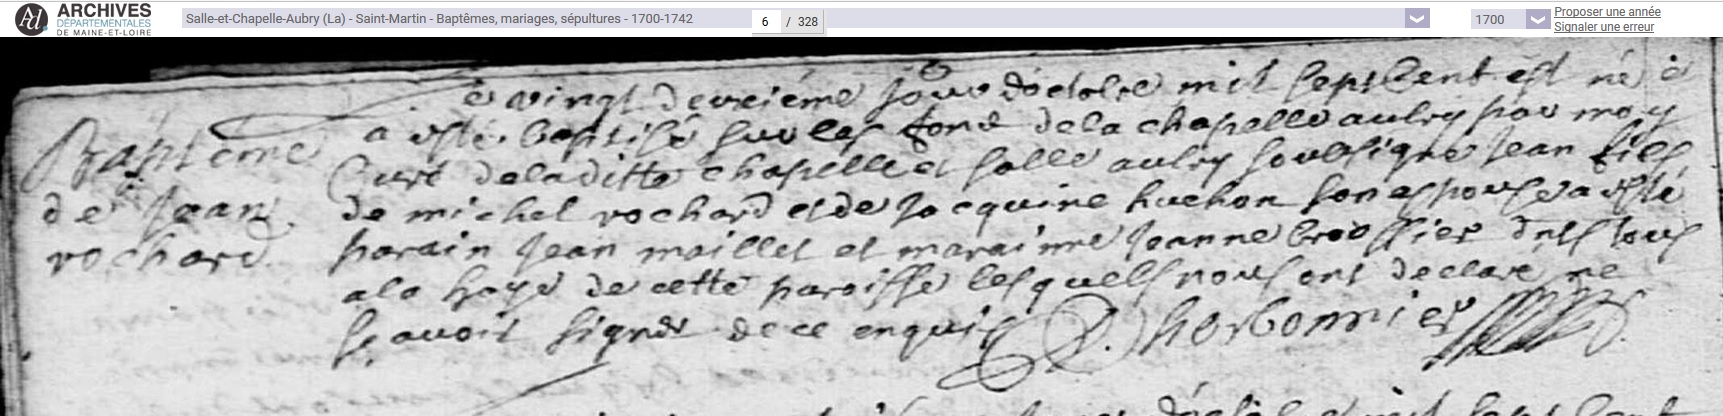 ARCHIVES
DÉPARTEMENTALES
DE MAINE-ET-LOIRE
Salle-et-Chapelle-Aubry (La) - Saint-Martin - Baptêmes, mariages, sépultures - 1700-1742
6 / 328
1700
Proposer une année
Signaler une erreur
Baptème
de Jean
rochard
Le vingt deuxiéme jour d'octobre mil sept cent est né et
a esté baptisé sur les fond de la chapelle aubry par moy
Curé de la ditte chapelle et salle aubry soubsigné Jean fils
de michel rochard et de Jacquine huchon son espouse a esté
parain Jean maillet et maraine Jeanne brossier touſ
a la haye de cette paroisse lesquels nous ont declaré ne
scavoir signer de ce enquis Charbonnier